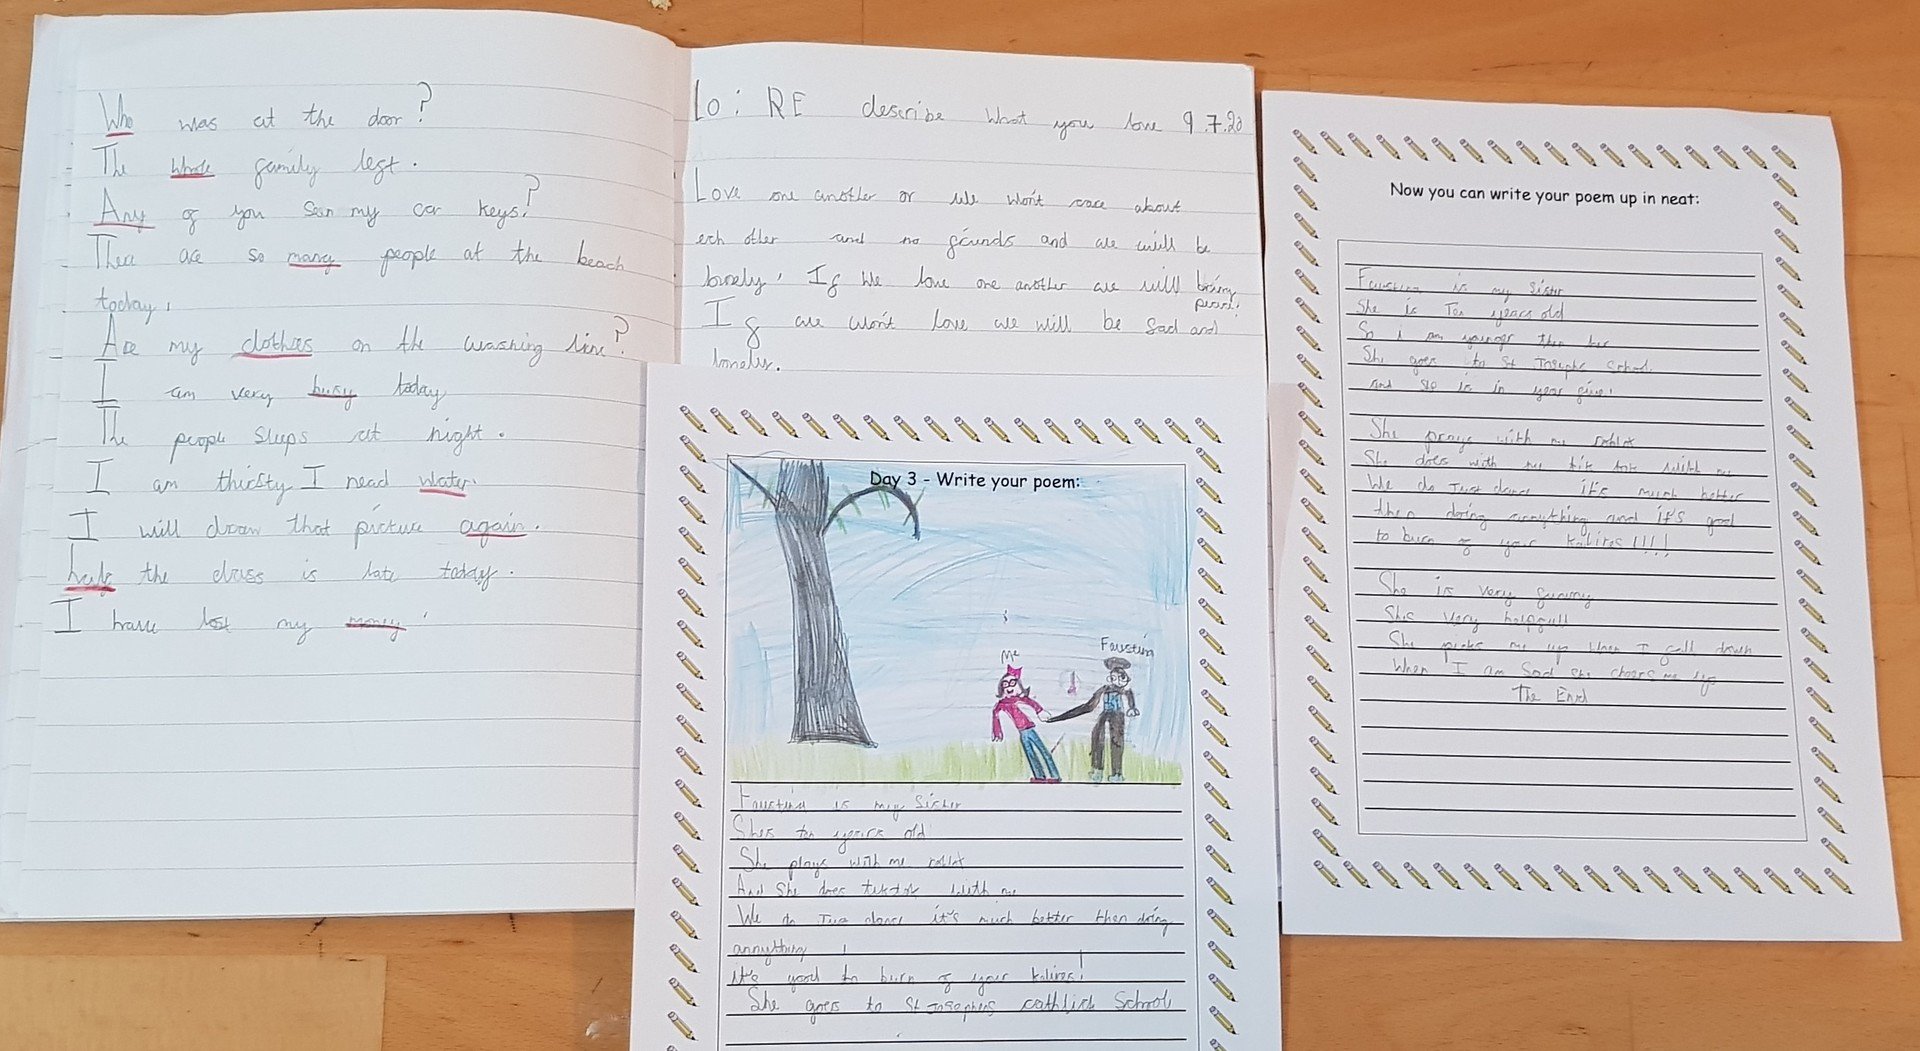 Who was at the door?
The whole family left.
Any of you seen my car keys?
There are so many people at the beach
today.
Are my clothes on the washing line?
I am very busy today
The people sleeps at night.
I am thirsty I nead water.
I will draw that picture again.
half the class is late today.
I have lost my money.
Lo: RE describe what you love 9.7.20
Love one another or we won't care about
ech other and no friends and we will be
lonely. If we love one another we will bring
peace.
If we won't love we will be sad and
lonely.
Day 3 - Write your poem:
Me
Faustin
Faustina is my Sister
Shes ten years old
She plays with me roblox
And She does tiktok with me
We do Just dance it's much better then doing
annything !
it's good to burn of your kalires!
She goes to St Josephs cathlick School
Now you can write your poem up in neat:
Faustina is my Sister
She is Ten years old
So I am younger then her
She goes to St Josephs School.
and she is in year five.
She prays with me roblox
She does with me tik tok with me
We do Just dance it's much better
then doing annything and it's good
to burn of your kalires!!!!
She is very funny
She very helpfull
She picks me up when I fall down
When I am Sad she cheers me up
The End